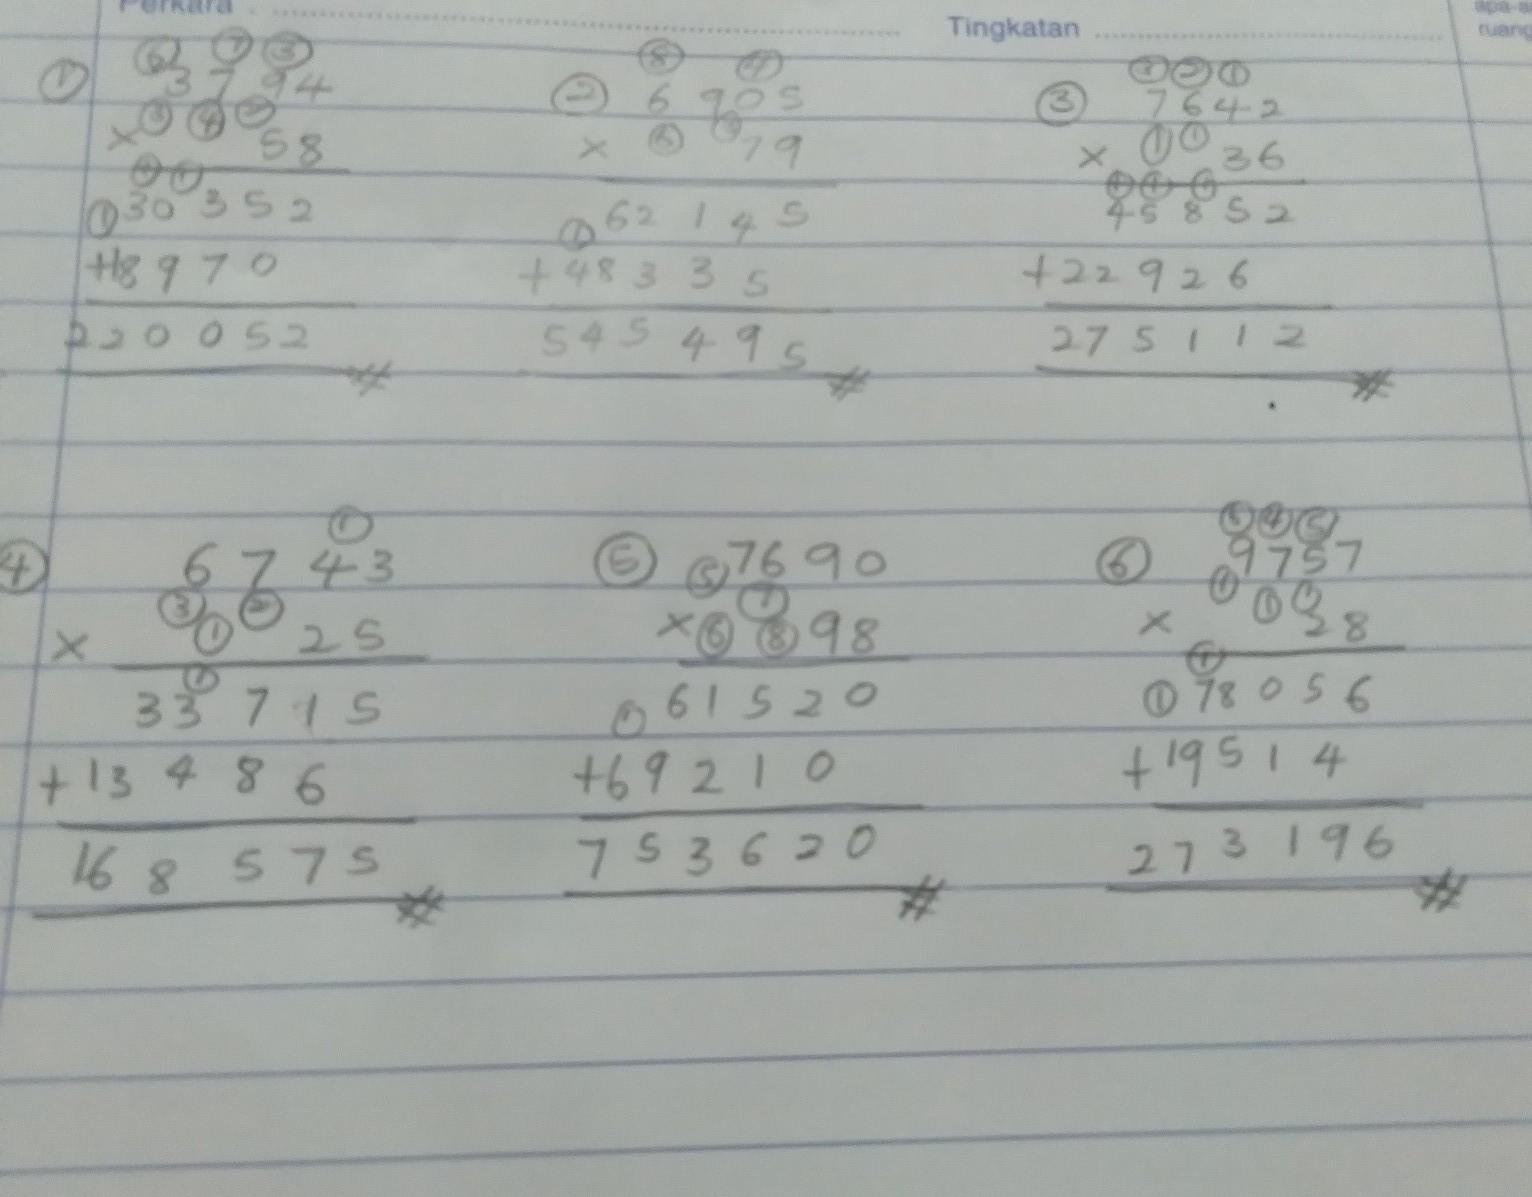 Perkara
Tingkatan
apa-a
ruang
① ⑥ ⑦ ③
3794
× ③ ④ ② 58
① ①
① 30352
+18970
220052
#
② ⑧ ④
6905
× ⑥ ③ 79
① 62145
+48335
545495
#
③ ③ ② ①
7642
× ① ① 36
① ① ①
45852
+22926
275112
#
④ ①
6743
③ ②
× ① 25
①
33715
+13486
168575
#
⑤ ⑤ 7690
⑦
× ⑥ ⑧ 98
① 61520
+69210
753620
#
⑥ ⑤ ④ ⑤
9757
① ① ①
× 28
①
① 78056
+19514
273196
#